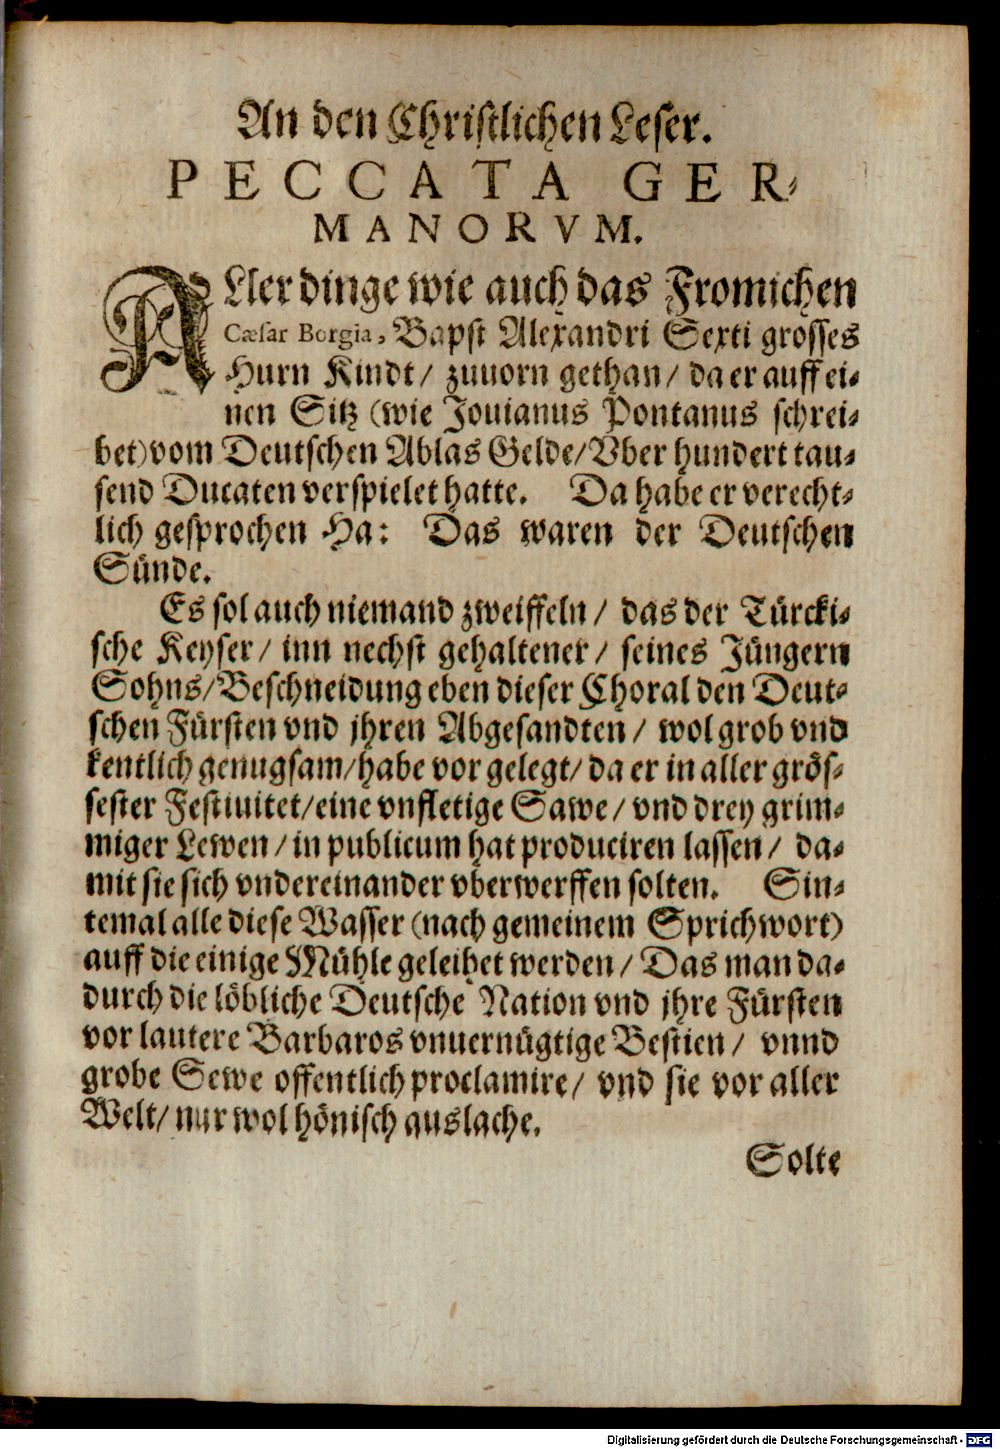 An den Christlichen Leser.
PECCATA GER-
MANORVM.
ALler dinge wie auch das Fromichen
Cæsar Borgia, Bapst Alexandri Sexti grosses
Hurn Kindt/ zuuorn gethan/ da er auff ei-
nen Sitz (wie Jouianus Pontanus schrei-
bet) vom Deutschen Ablas Gelde/ Vber hundert tau-
send Ducaten verspielet hatte. Da habe er verecht-
lich gesprochen Ha: Das waren der Deutschen
Sünde.
Es sol auch niemand zweiffeln/ das der Türcki-
sche Keyser/ inn nechst gehaltener/ seines Jüngern
Sohns/ Beschneidung eben dieser Choral den Deut-
schen Fürsten vnd jhren Abgesandten/ wol grob vnd
kentlich genugsam/ habe vor gelegt/ da er in aller grös-
sester Festiuitet/ eine vnfletige Sawe/ vnd drey grim-
miger Lewen/ in publicum hat produciren lassen/ da-
mit sie sich vndereinander vberwerffen solten. Sin-
temal alle diese Wasser (nach gemeinem Sprichwort)
auff die einige Mühle geleihet werden/ Das man da-
durch die löbliche Deutsche Nation vnd jhre Fürsten
vor lautere Barbaros vnuernügtige Bestien/ vnnd
grobe Sewe offentlich proclamire/ vnd sie vor aller
Welt/ nur wol hönisch auslache.
Solte
Digitalisierung gefördert durch die Deutsche Forschungsgemeinschaft - DFG